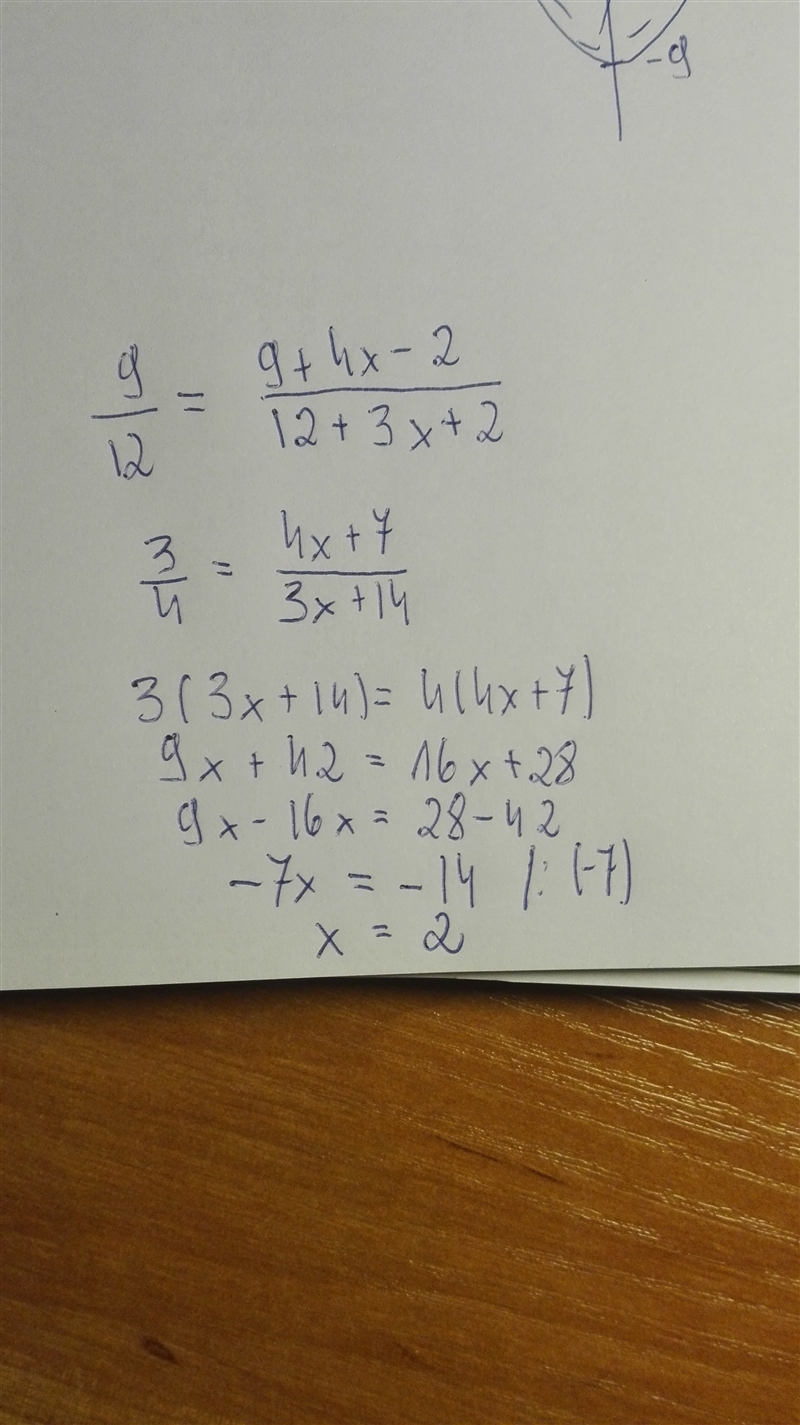 -9
9/12 = (9+4x-2)/(12+3x+2)
3/4 = (4x+7)/(3x+14)
3(3x+14)=4(4x+7)
9x+42=16x+28
9x-16x=28-42
-7x=-14 /:(-7)
x=2